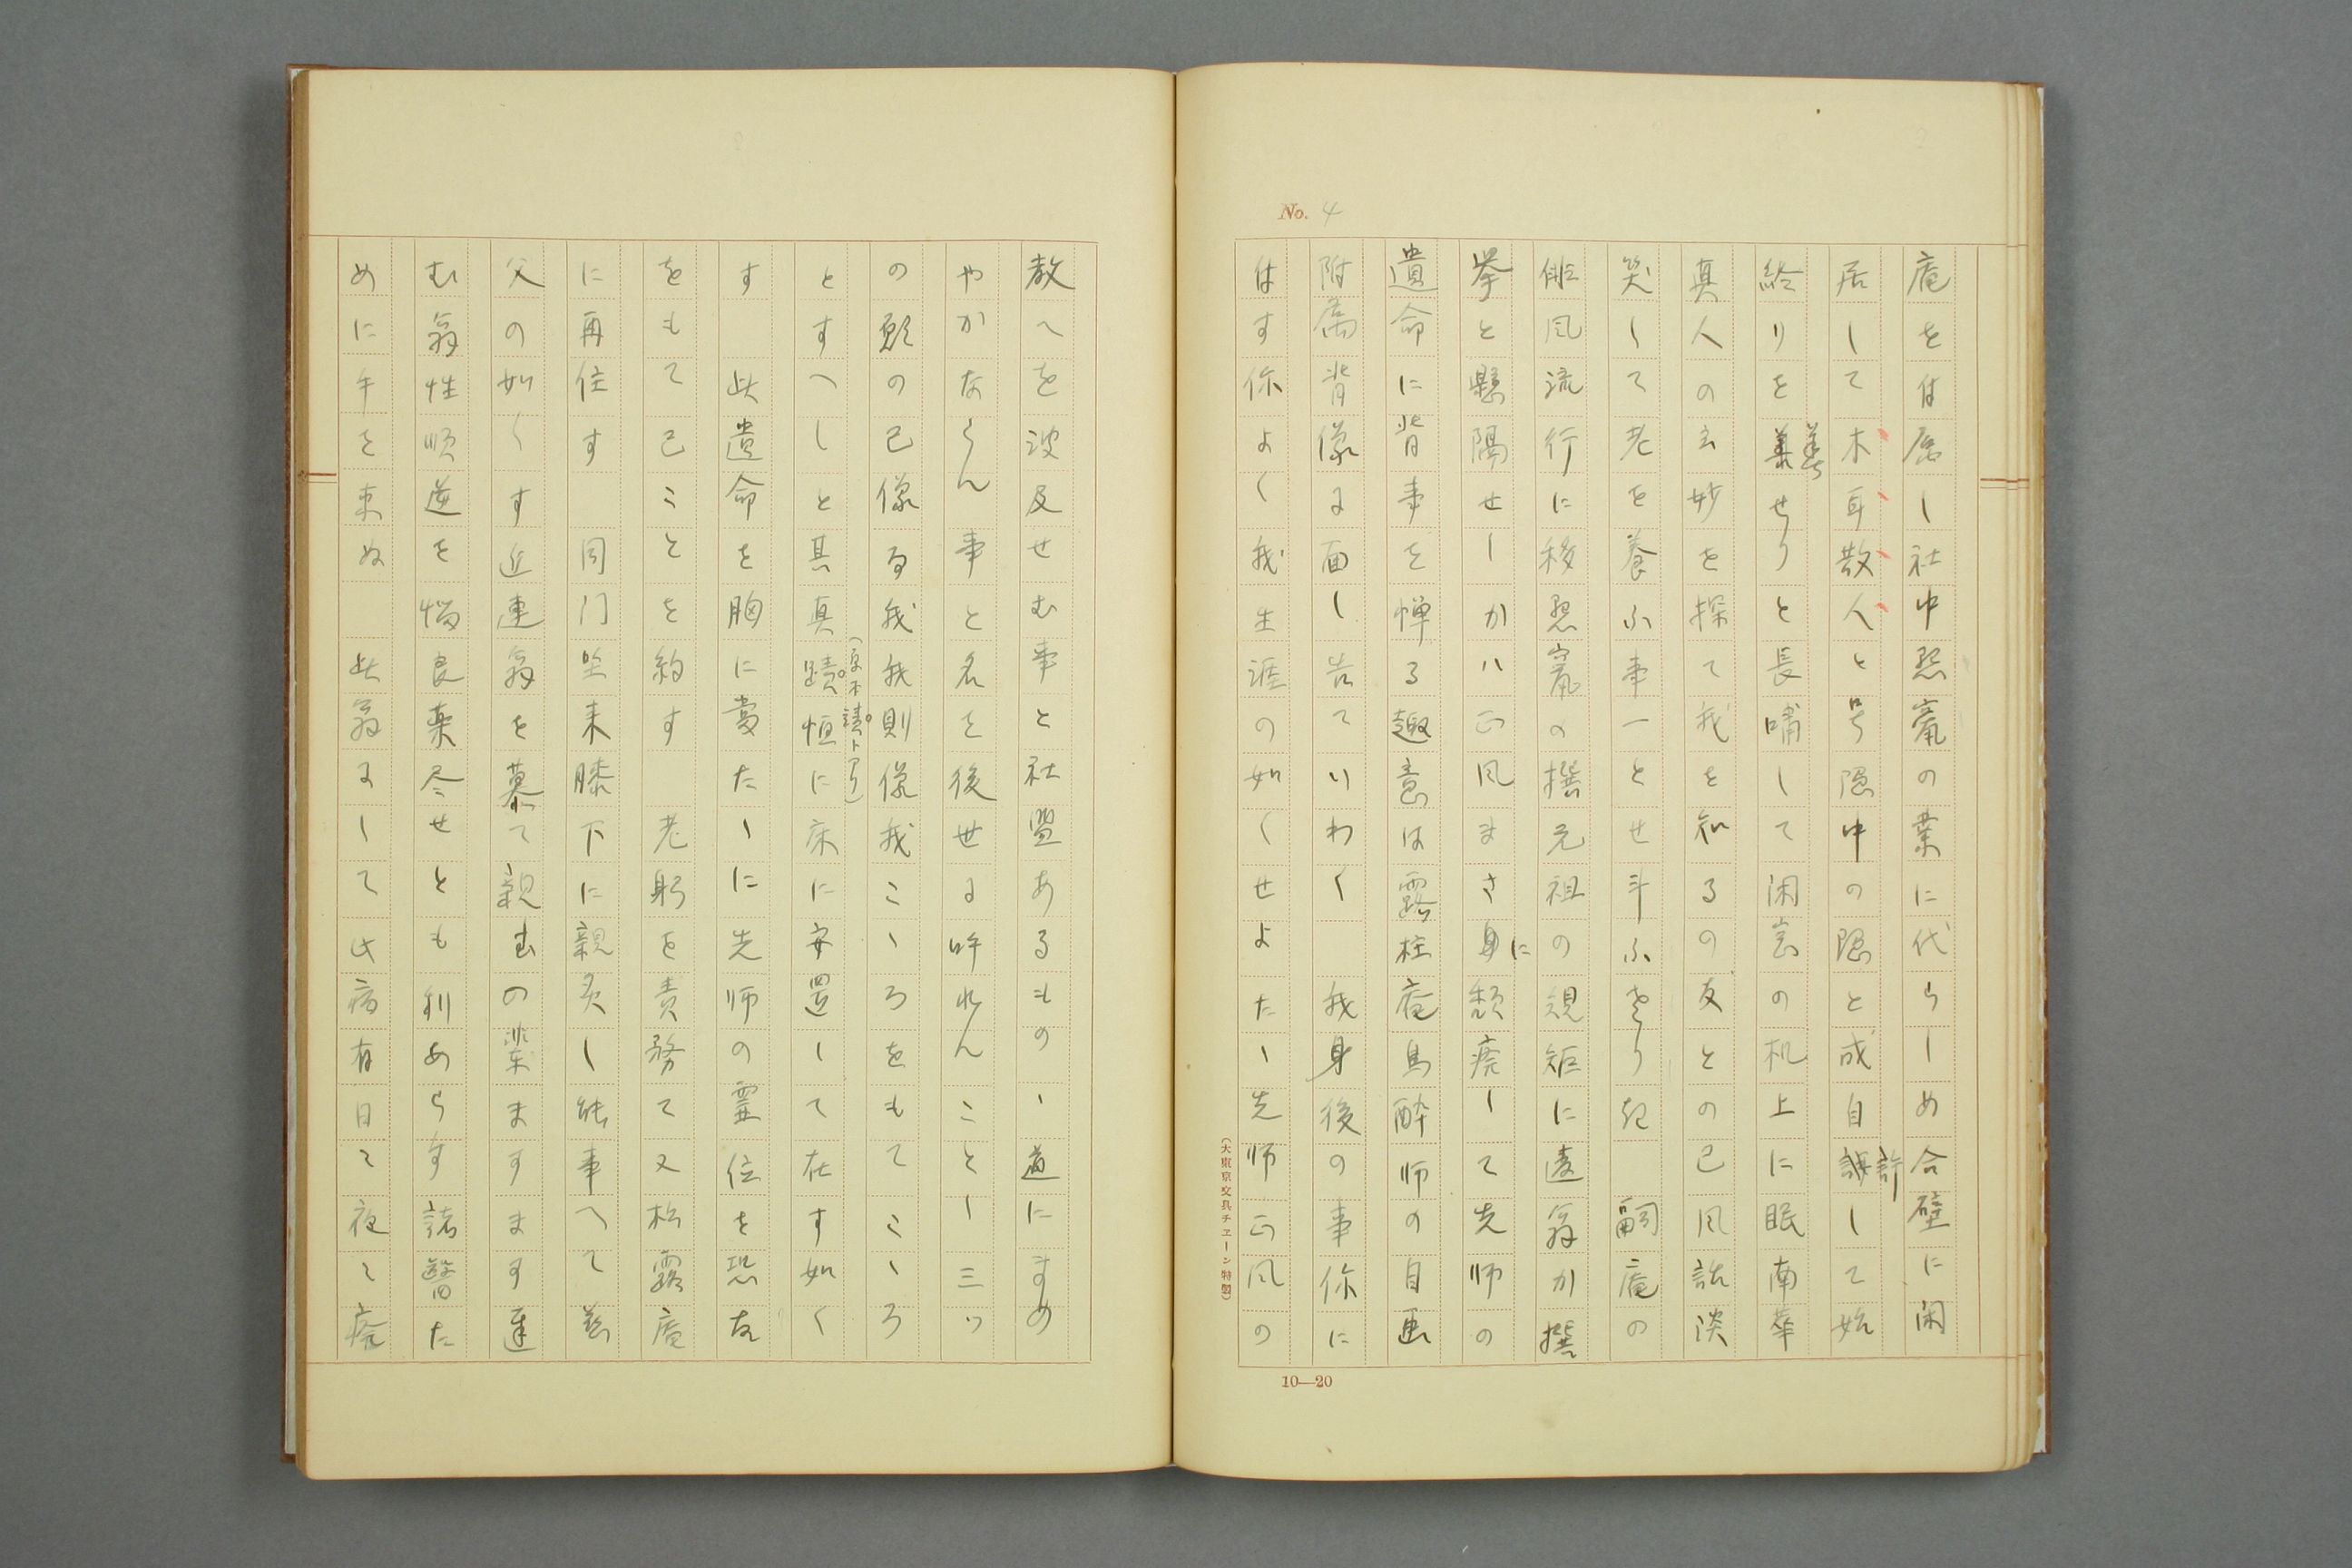 No. 4
庵をは属し社中怒竈の業に代らしめ合壁に閑
居して木耳散人と号隠中の隠と成自誤して始
許
給りを義せりと長嘯して閑窓の机上に眠南華
真人の玄妙を探て我を知るの友との已風談談
笑して老を養ふ事一とせ斗ふせり乾 嗣庵の
俳風流行に移怒竈の撰元祖の規矩に遠翁か撰
挙と懸隔せしかハ正風まさに身頽廃して先师の
遺命に背事を憚る趣意は露柱庵馬酔师の自画
附属背像に面し告ていわく 我身後の事你に
はす你よく我生涯の如くせよたゝ先师正风の
10—20
(大東京文具チェーン特製)
教へを波及せむ事と社盟あるものゝ道にすめ
やかならん事と名を後世に呼れんことし三ッ
の願の已像る我我則像我こゝろをもてこゝろ
とすへしと其真蹟恒に床に安置して在す如く
(原本請トアリ)
す 此遺命を胸に当たゝに先师の霊位を恐友
をもて已ことを約す 老躬を責務て又松露庵
に再住す 同门坐来膝下に親炙し能事へて慈
父の如くす近連翁を慕て親むの輩ますます連
む翁性順逆を悩良薬尽せとも利あらす諸醫た
めに手を束ぬ 此翁にして此病有日々夜々療